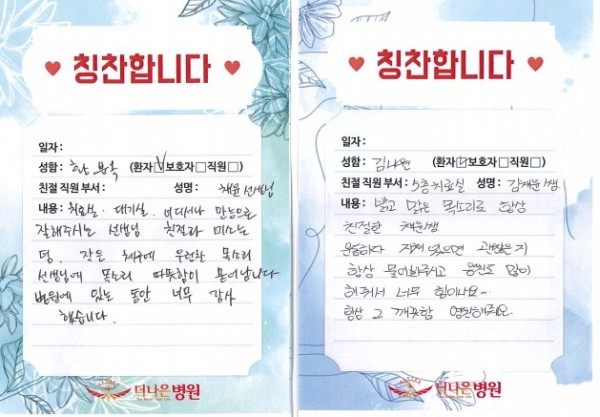 칭찬합니다
일자 :
성함 : 황 봉옥 (환자☑보호자□직원□)
친절 직원 부서 : 성명 : 채윤 선생님
내용 : 치료실. 대기실. 어디서나 만능으로
잘해주시는 선생님 친절과 미소는
덤. 작은 체구에 우렁찬 목소리
선생님에 목소리 따뜻함이 묻어납니다
병원에 있는 동안 너무 감사
했습니다.
더나은병원
칭찬합니다
일자 :
성함 : (환자☑보호자□직원□)
친절 직원 부서 : 5층 치료실 성명 : 김채윤쌤
내용 : 밝고 맑은 목소리로 항상
친절한 채윤쌤
운동하다 지쳐 있으면 괜찮은지
항상 물어봐주고 응원도 많이
해줘서 너무 힘이나요~
항상 그 깨끗함 영원해줘요
더나은병원